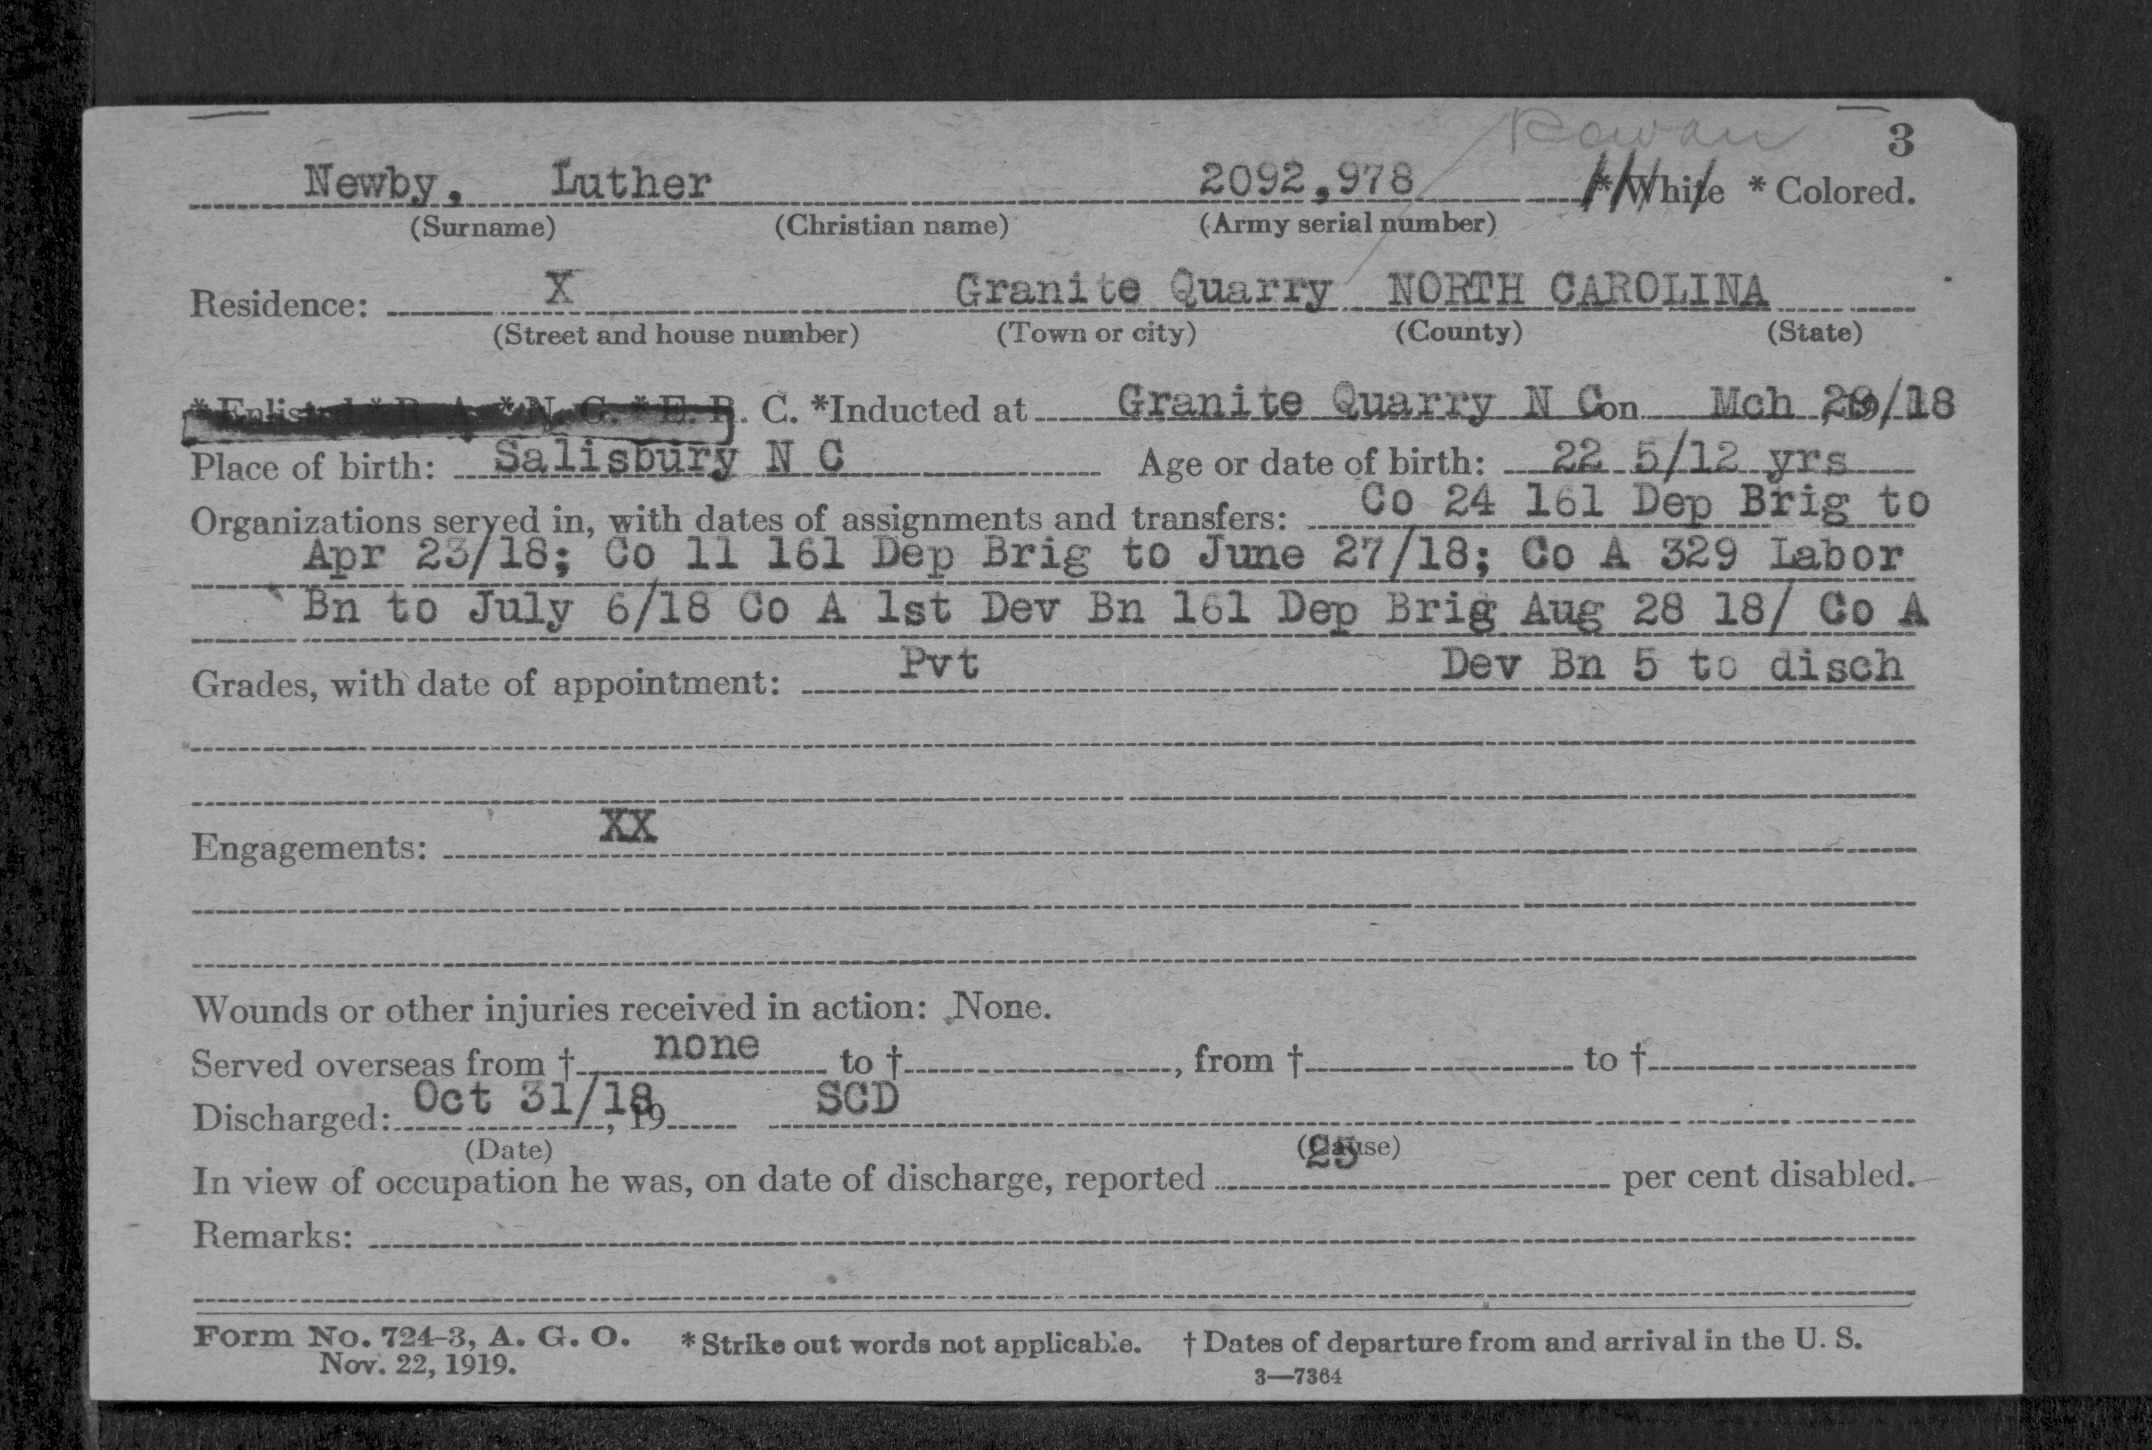 Rowan 3
Newby, Luther 2092,978 * White * Colored.
(Surname) (Christian name) (Army serial number)
Residence: X Granite Quarry NORTH CAROLINA
(Street and house number) (Town or city) (County) (State)
* Enlisted * R. A. * N. G. * E. R. C. *Inducted at Granite Quarry N C on Mch 29/18
Place of birth: Salisbury N C Age or date of birth: 22 5/12 yrs
Organizations served in, with dates of assignments and transfers: Co 24 161 Dep Brig to
Apr 23/18; Co 11 161 Dep Brig to June 27/18; Co A 329 Labor
Bn to July 6/18 Co A 1st Dev Bn 161 Dep Brig Aug 28 18/ Co A
Grades, with date of appointment: Pvt Dev Bn 5 to disch
Engagements: XX
Wounds or other injuries received in action: None.
Served overseas from † none to †, from † to †
Discharged: Oct 31/18, 19 SCD
(Date) (Cause)
In view of occupation he was, on date of discharge, reported 25 per cent disabled.
Remarks:
Form No. 724-3, A. G. O. * Strike out words not applicable. † Dates of departure from and arrival in the U. S.
Nov. 22, 1919. 3—7364